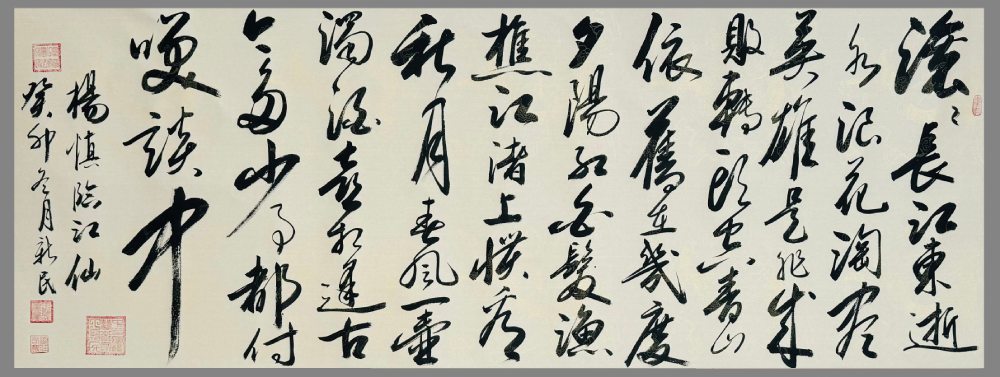 滾〻長江東逝
水浪花淘盡
英雄是非成
敗轉頭空青山
依舊在幾度
夕陽紅白髮漁
樵江渚上慣看
秋月春風一壺
濁酒喜相逢古
今多少事都付
笑談中
楊慎臨江仙
癸卯冬月新民